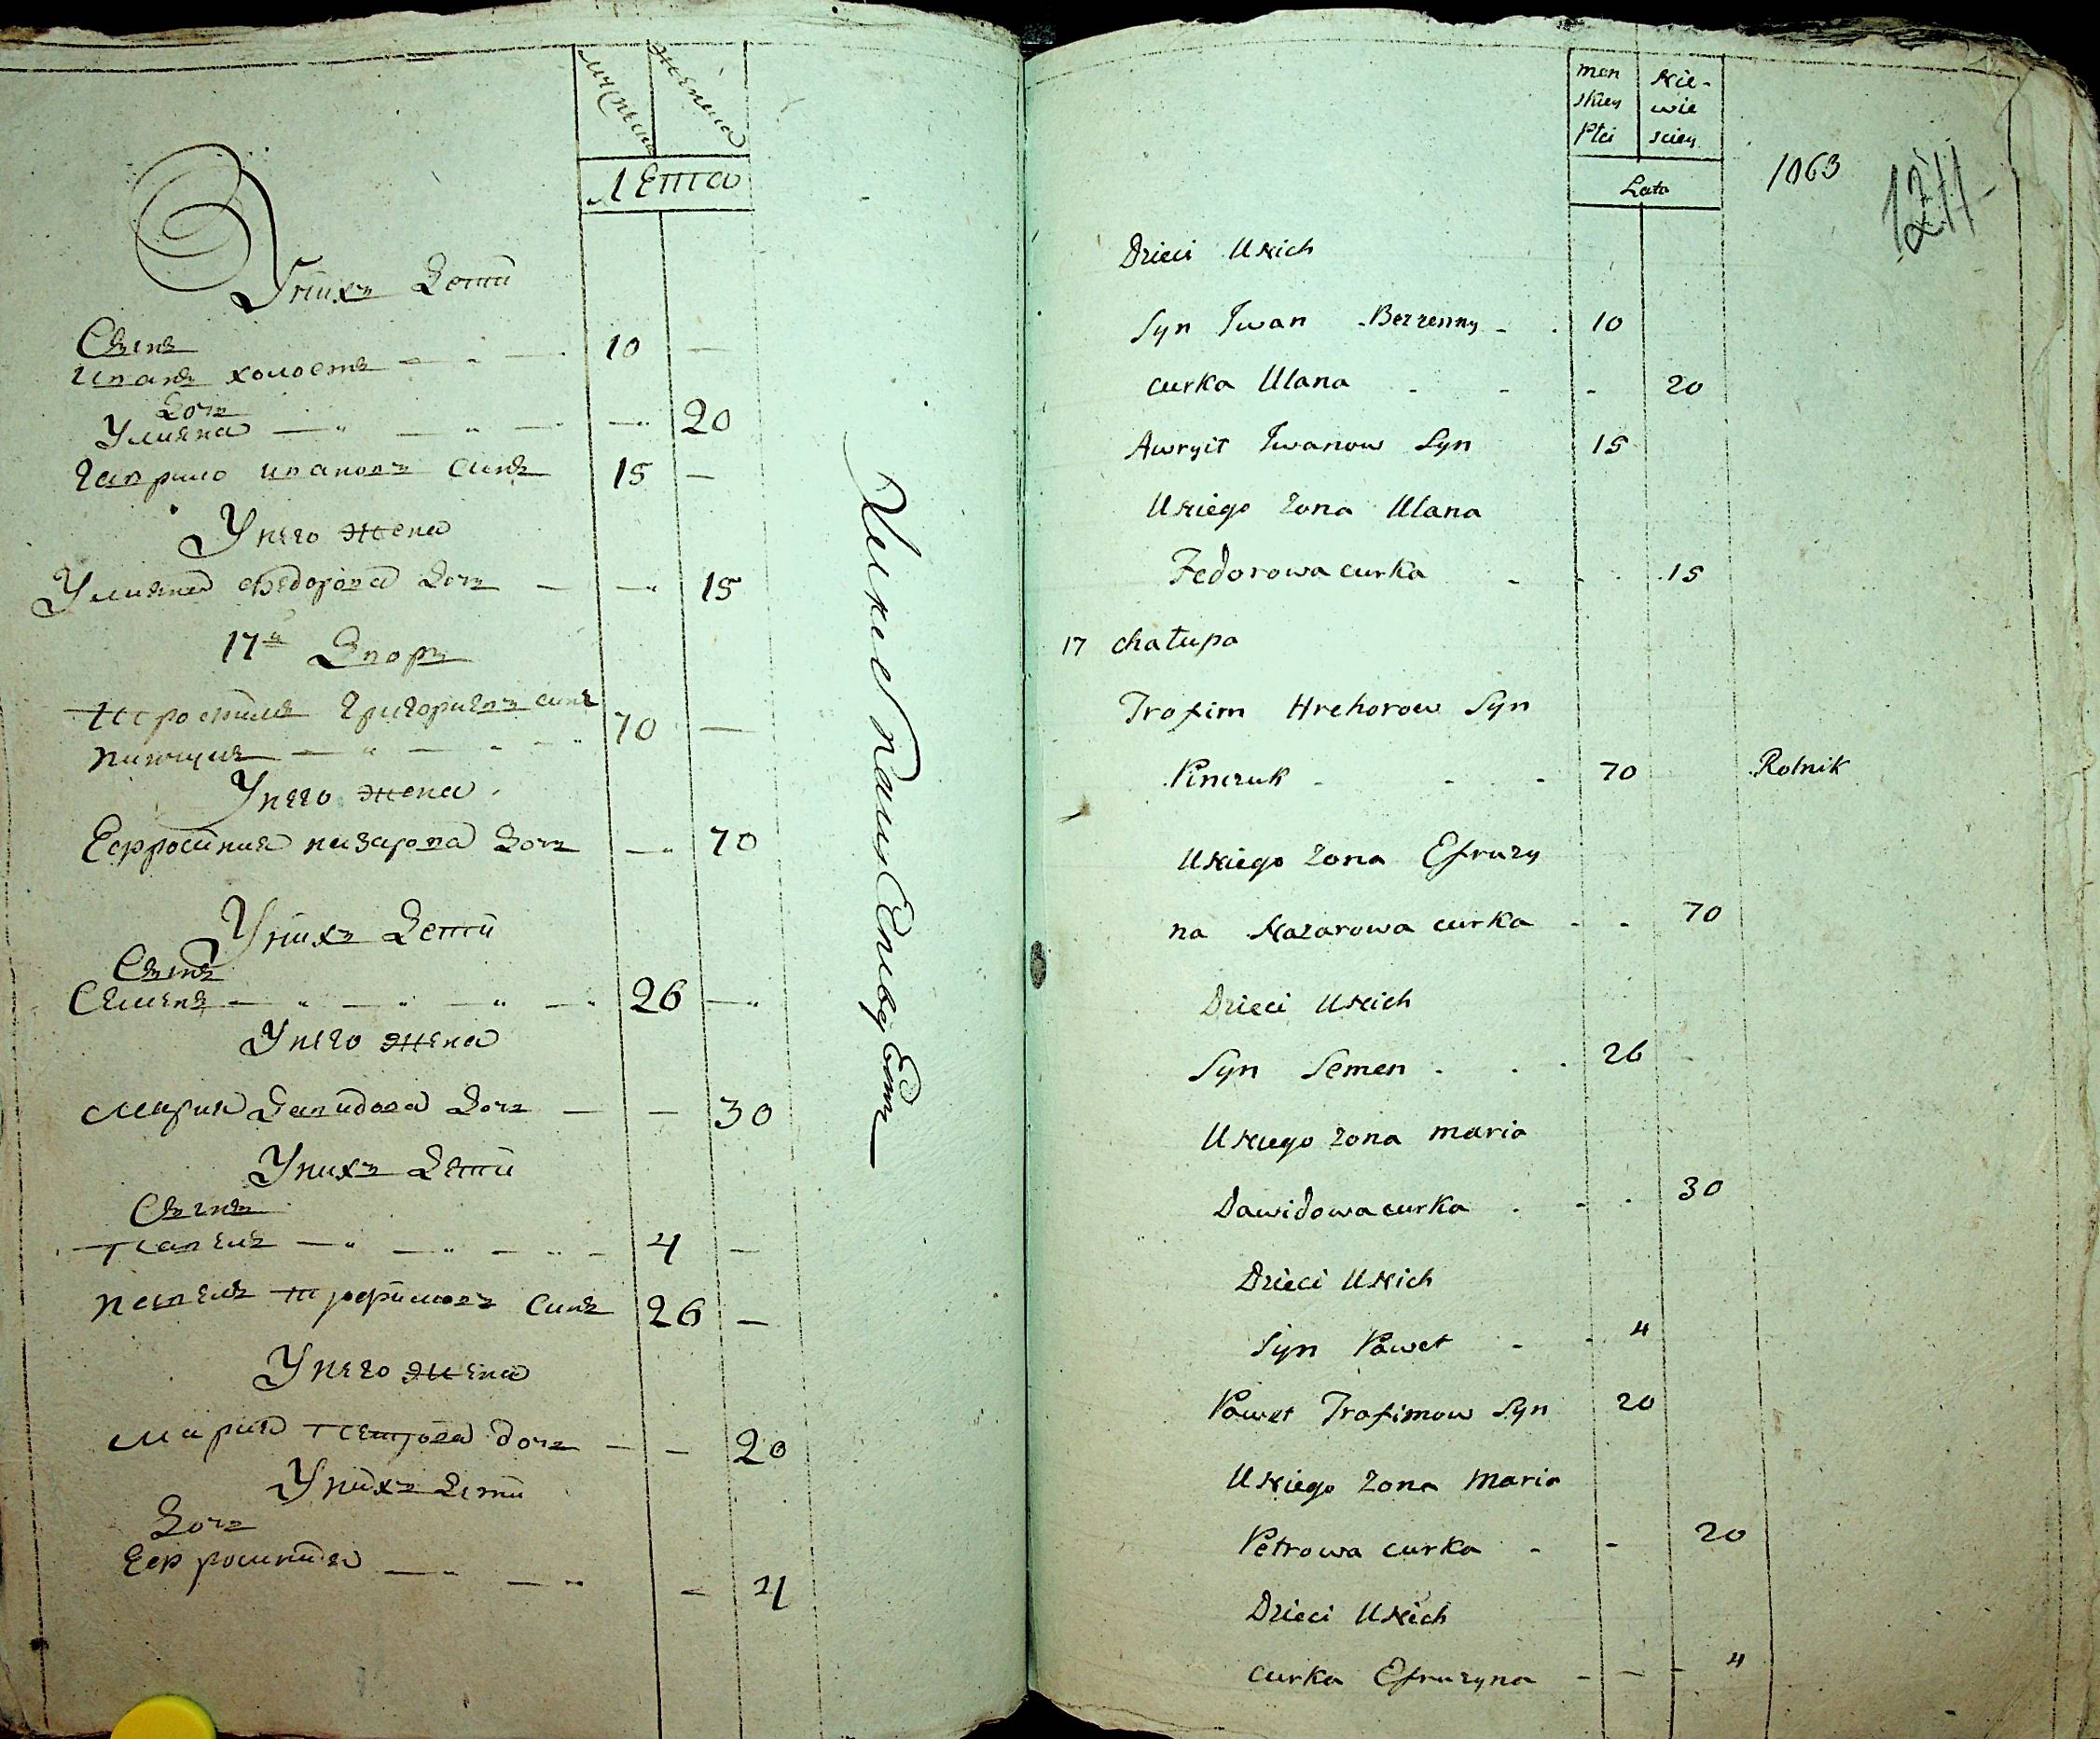 мужеска
женска
лета
У них детй
Сынъ
Иванъ холостъ 10
Дочь
Улияна 20
Гаврило Ивановъ синъ 15
У него жена
Улияна Федорова дочь 15
17й Дворъ
Трофимъ Григориевъ синъ
Пинчукъ 70
У него жена
Ефросиния Назарова дочь 70
У них детй
Сынъ
Семенъ 26
У него жена
Мария Давидова дочь 30
У них детй
Сынъ
Павелъ 4
Павелъ Трофимовъ синъ 26
У него жена
Мария Петрова дочь 20
У них детй
Дочь
Ефросиния 4
men Nie-
skiey wie
Płci sciey
Lata
1063
Dzieci U Nich
Syn Iwan Bezzenny 10
curka Ulana 20
Awryił Iwanow Syn 15
U Niego Zona Ulana
Fedorowa curka 15
17 chałupa
Trofim Hrehorow Syn
Pinczuk 70 Rolnik
U Niego Zona Efruzy
na Nazarowa curka 70
Dzieci U Nich
Syn Semen 26
U Niego Zona Maria
Dawidowa curka 30
Dzieci U Nich
Syn Paweł 4
Paweł Trofimow Syn 20
U Niego Zona Maria
Petrowa curka 20
Dzieci U Nich
curka Efruzyna 4